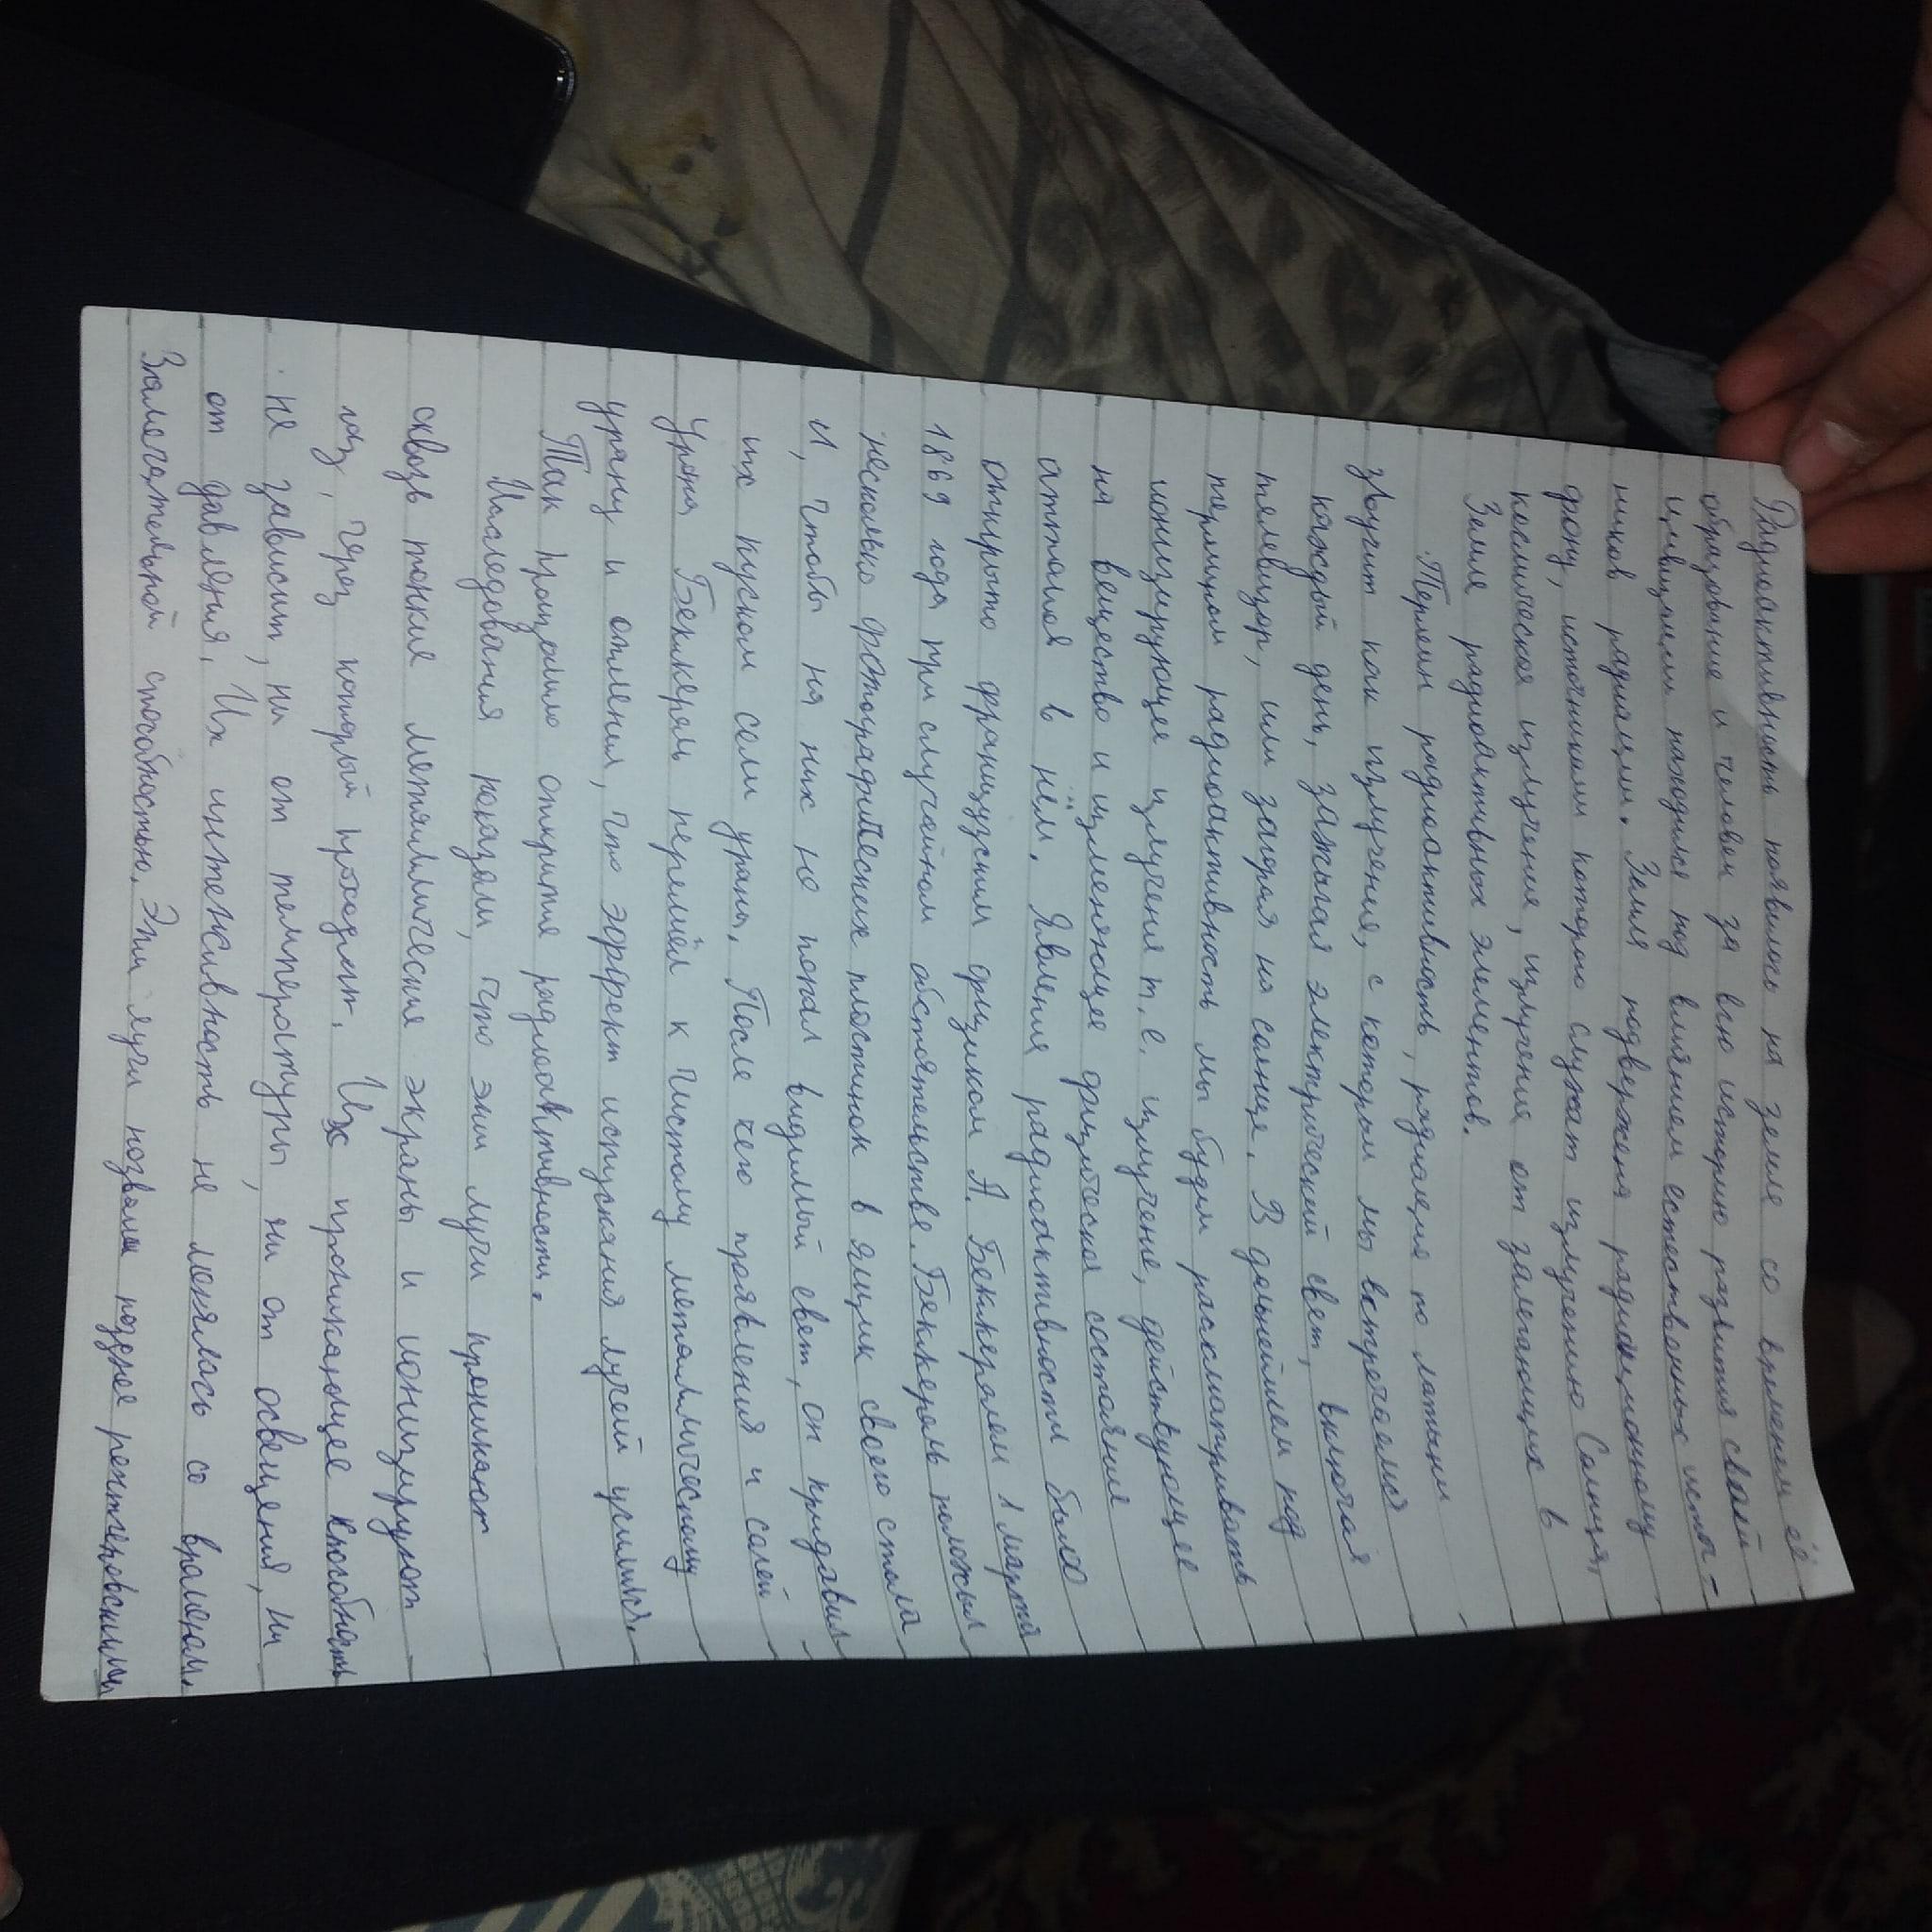 Радиоактивность появилась на земле со времени её
образование и человек за всю историю развития своей
цивилизации находился под влиянием естественных источ-
ников радиации. Земля подвержена радиационному
фону, источниками которого служат излучению Солнца,
космическое излучение, излучение от залегающих в
Земле радиоактивных элементов.
Термин радиоактивность, радиация по латыни
звучит как излучение, с которым мы встречаемся
каждый день, зажигая электрический свет, включая
телевизор, или загорая на солнце. В дальнейшем под
термином радиоактивность мы будем рассматривать
ионизирующее излучение т.е. излучение, действующее
на вещество и изменяющее физическое состояние
атомов в нём. Явление радиоактивности было
открыто французским физиком А. Беккерелем 1 марта
1869 года при случайном обстоятельстве. Беккерель положил
несколько фотографических пластинок в ящик своего стола
и, чтобы на них не попал видимый свет, он придавил
их куском соли урана. После чего проявления и солей
Урана Беккерель перешёл к чистому металлическому
урану и отменил, что эффект испускания лучей усилился.
Так произошло открытие радиоактивности.
Исследования показали, что эти лучи проникают
сквозь тонкие металлические экраны и ионизируют
газ, через который проходят. Их проникающее способность
не зависит, ни от температуры, ни от освещения, ни
от давления. Их интенсивность не менялась со временем.
Замечательной способностью. Эти лучи назвали позднее рентгеновскими